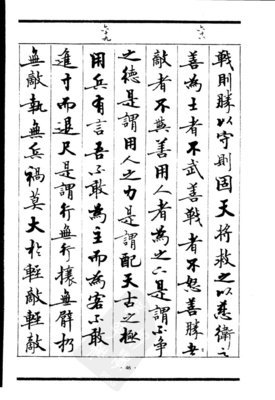 六八
六九
戰則勝以守則固天將救之以慈衛之
善為士者不武善戰者不怒善勝
敵者不與善用人者為之下是謂不爭
之德是謂用人之力是謂配天古之極
用兵有言吾不敢為主而為客不敢
進寸而退尺是謂行無行攘無臂扔
無敵執無兵禍莫大於輕敵輕敵
· 46 ·